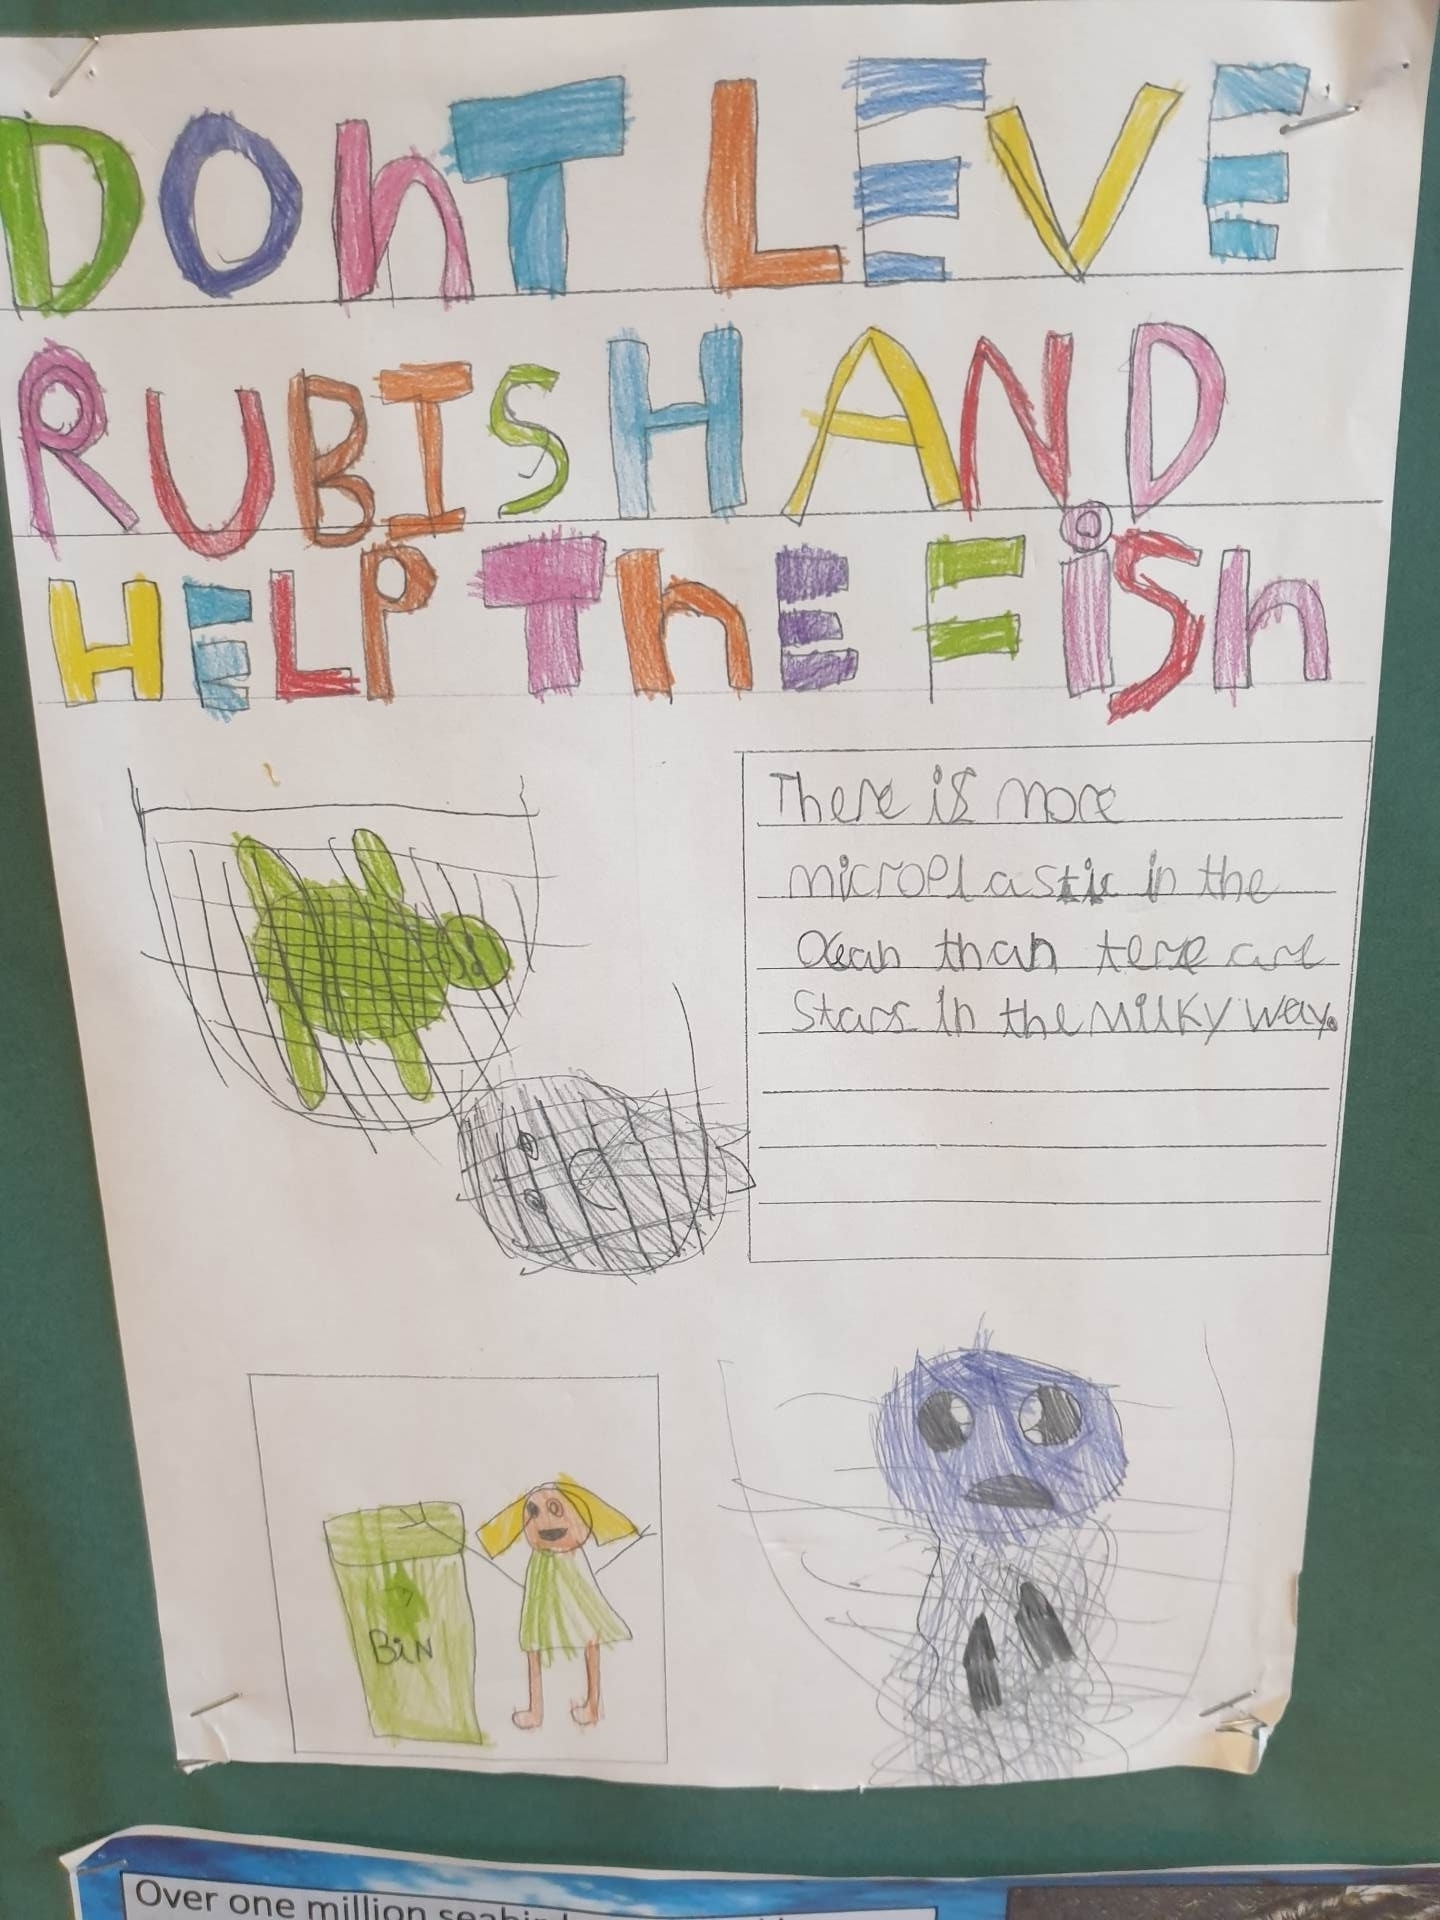 DOnT LEVE
RUBISH AND
HELP ThE FiSh
There is more
microplastic in the
Ocean than tere are
Stars in the Milky way.
BiN
Over one million